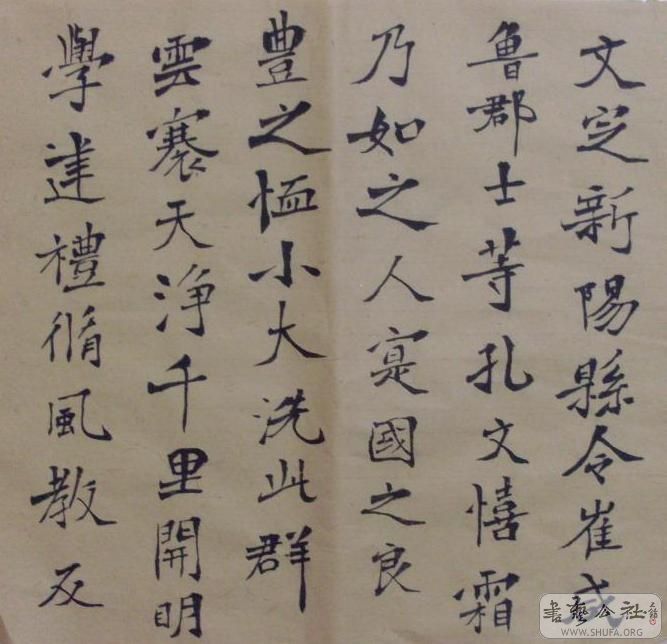 文定新陽縣令崔
魯郡士等孔文憘霜
乃如之人寔國之良
豊之恤小大洗此群
雲褰天淨千里開明
學建禮脩風教反
書藝公社
WWW.SHUFA.ORG